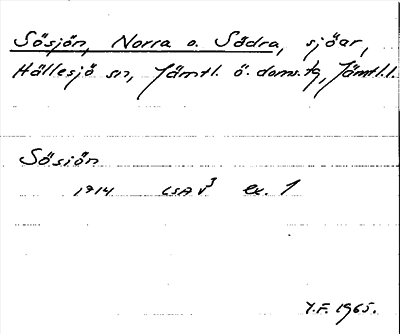 Sösjön, Norra o. Södra, sjöar,
Hällesjö sn, Jämtl. ö. doms.tg, Jämtl.l.
Sösiön
1914 LSA V³ ex. 1
Y.F. 1965.